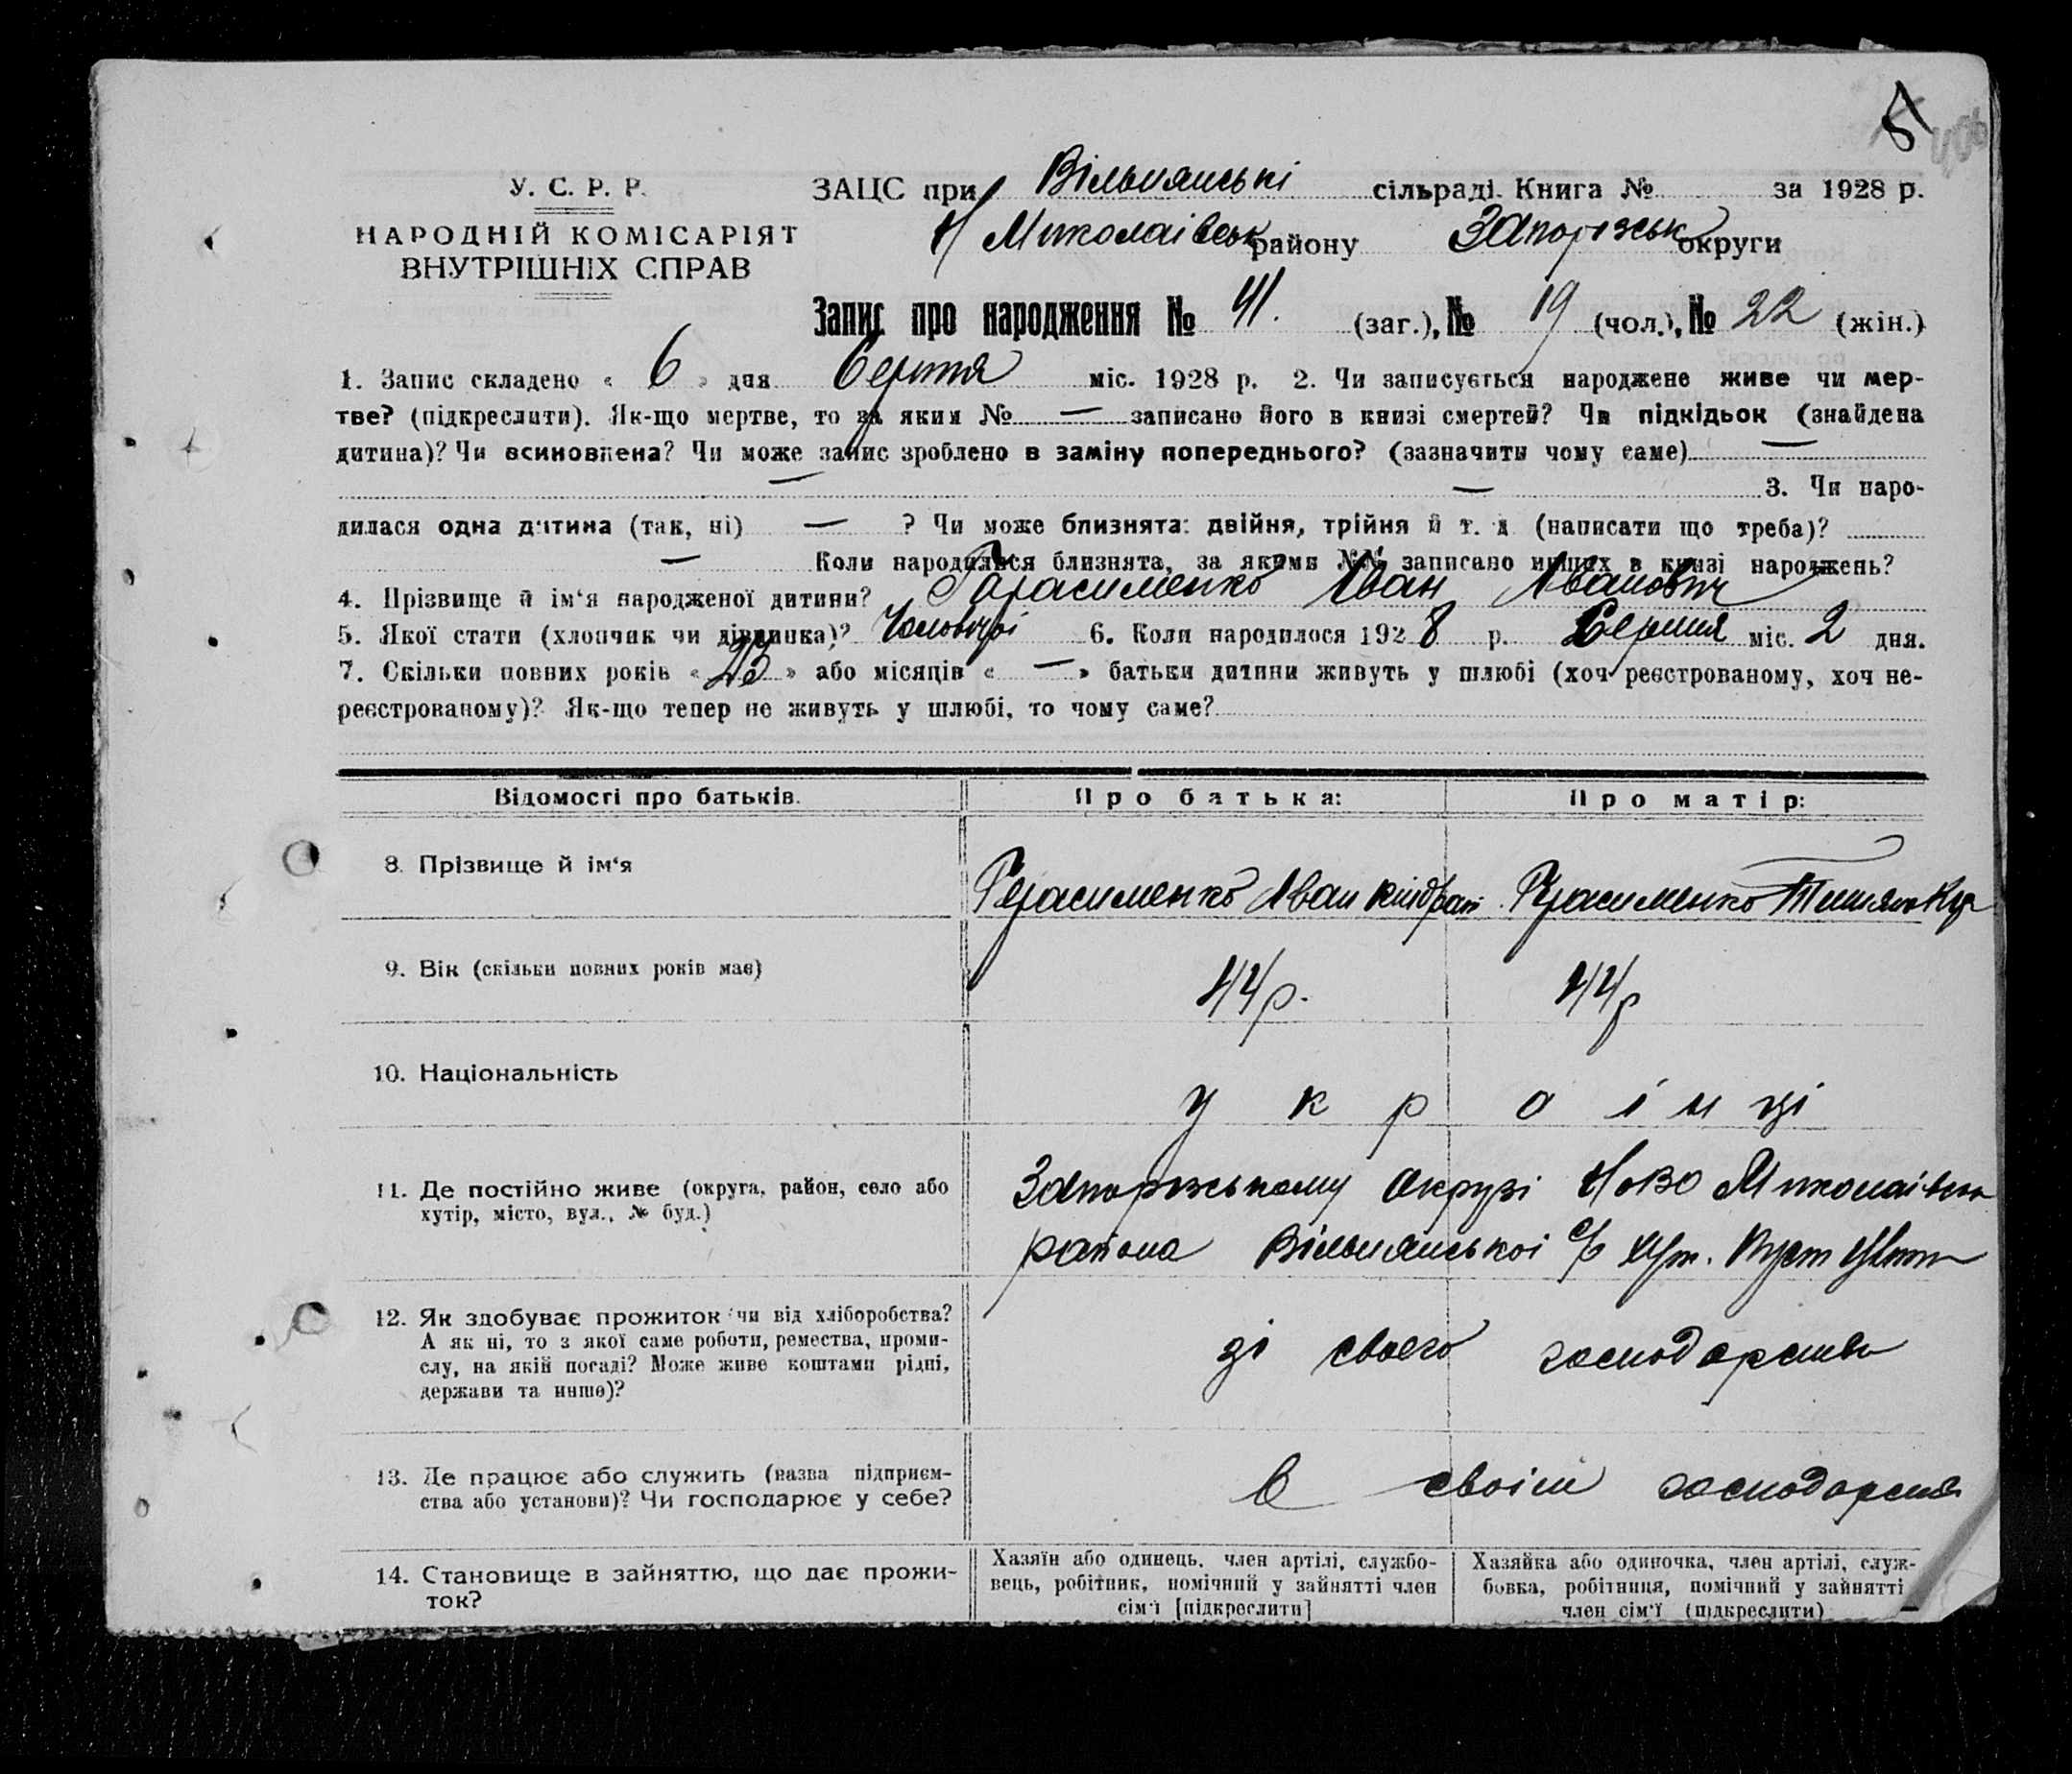 У. С. Р. Р.
НАРОДНІЙ КОМІСАРІЯТ
ВНУТРІШНІХ СПРАВ
ЗАЦС при Вільнянські сільраді. Книга № за 1928 р.
Н Миколаівськ району Запорізськ округи
Запис про народження № 41. (заг.), № 19 (чол.), № 22 (жін.)
1. Запис складено « 6 » дня Серпня міс. 1928 р. 2. Чи записується народжене живе чи мер-
тве? (підкреслити). Як-що мертве, то за яким № — записано його в книзі смертей? Чи підкідьок (знайдена
дитина)? Чи всиновлена? Чи може запис зроблено в заміну попереднього? (зазначити чому саме) —
— — 3. Чи наро-
дилася одна дитина (так, ні) — ? Чи може близнята: двійня, трійня й т. д. (написати що треба)?
— Коли народилися близнята, за якими №№ записано инших в книзі народжень?
4. Прізвище й ім‘я народженої дитини? Герасименко Іван Іванович
5. Якої стати (хлопчик чи дівчинка)? Чоловічоі 6. Коли народилося 1928 р. Серпня міс. 2 дня.
7. Скільки повних років « 23 » або місяців « — » батьки дитини живуть у шлюбі (хоч реєстрованому, хоч не-
реєстрованому)? Як-що тепер не живуть у шлюбі, то чому саме?
Відомості про батьків. Про батька: Про матір:
8. Прізвище й ім‘я Герасименко Іван Кіндрат Герасименко
9. Вік (скільки повних років має) 44р. 44р
10. Національність украінці
11. Де постійно живе (округа, район, село або
хутір, місто, вул., № буд.)
Запорізському Окрузі Ново Миколаівськ
района Вільнянськоі с/р хут.
12. Як здобуває прожиток чи від хліборобства?
А як ні, то з якої саме роботи, ремества, проми-
слу, на якій посаді? Може живе коштами рідні,
держави та инше)?
зі своего господарства
13. Де працює або служить (назва підприєм-
ства або установи)? Чи господарює у себе?
в своім господарстві
14. Становище в зайняттю, що дає прожи-
ток?
Хазяїн або одинець, член артілі, службо-
вець, робітник, помічний у зайнятті член
сім‘ї [підкреслити]
Хазяйка або одиночка, член артілі, служ-
бовка, робітниця, помічний у зайнятті
член сім‘ї (підкреслити)